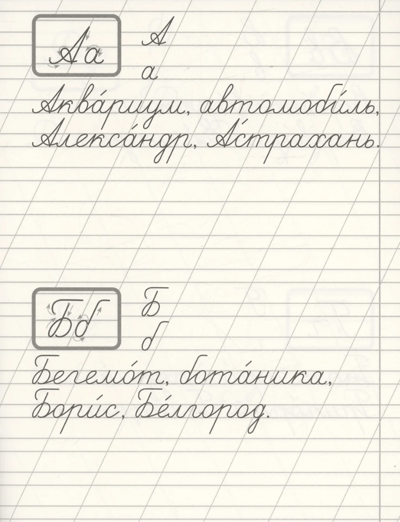 Аа
А
а
Аква́риум, автомоби́ль,
Алекса́ндр, А́страхань.
Бб
Б
б
Бегемо́т, бота́ника,
Бори́с, Бе́лгород.